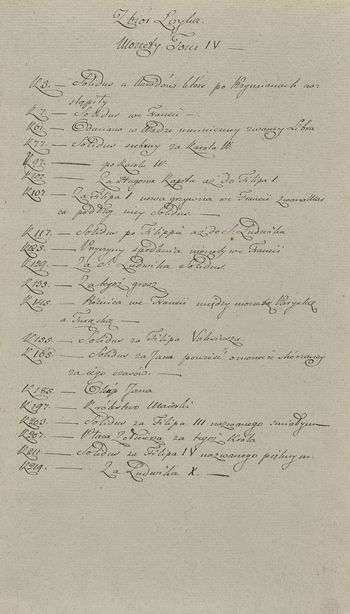 Zbiór Łoyka.
Monety Tom IV. —
K 3. — Solidus u Narodów które po Rzymianach na-
stąpiły
K 7. — Solidus we Francii —
K 61. — Odmiana w Wadze numiczney zwaney Libra
K 77. — Solidus srebrny za Karola W.
K 97. — po Karolu W.
K 102. — Za Hugona Kapeta aż do Filipa I.
K 107. — Za Filipa I nowa grzywna we Francii zwana Mar
ca podług niey Solidus. —
K 117. — Solidus po Filippie aż do S. Ludwika
K 123. — Przyczyny spodlenia monety we Francii
K 129. — Za S. Ludwika Solidus
K 133. — Za tegoż grosz
K 145. — Różnica we Francii między monetą Paryską
a Turską —
K 155. — Solidus za Filipa Valeziusza
K 165. — Solidus za Jana powieść o monecie skórzaney
za iego czasów. —
K 185. — Jana
K 197. — Królestwo
K 203. — Solidus za Filipa III nazwanego śmiałym —
K 207. — Płaca Żołnierza za tegoż Króla
K 211. — Solidus za Filipa IV nazwanego pięknym.
K 219. — Za Ludwika X. —